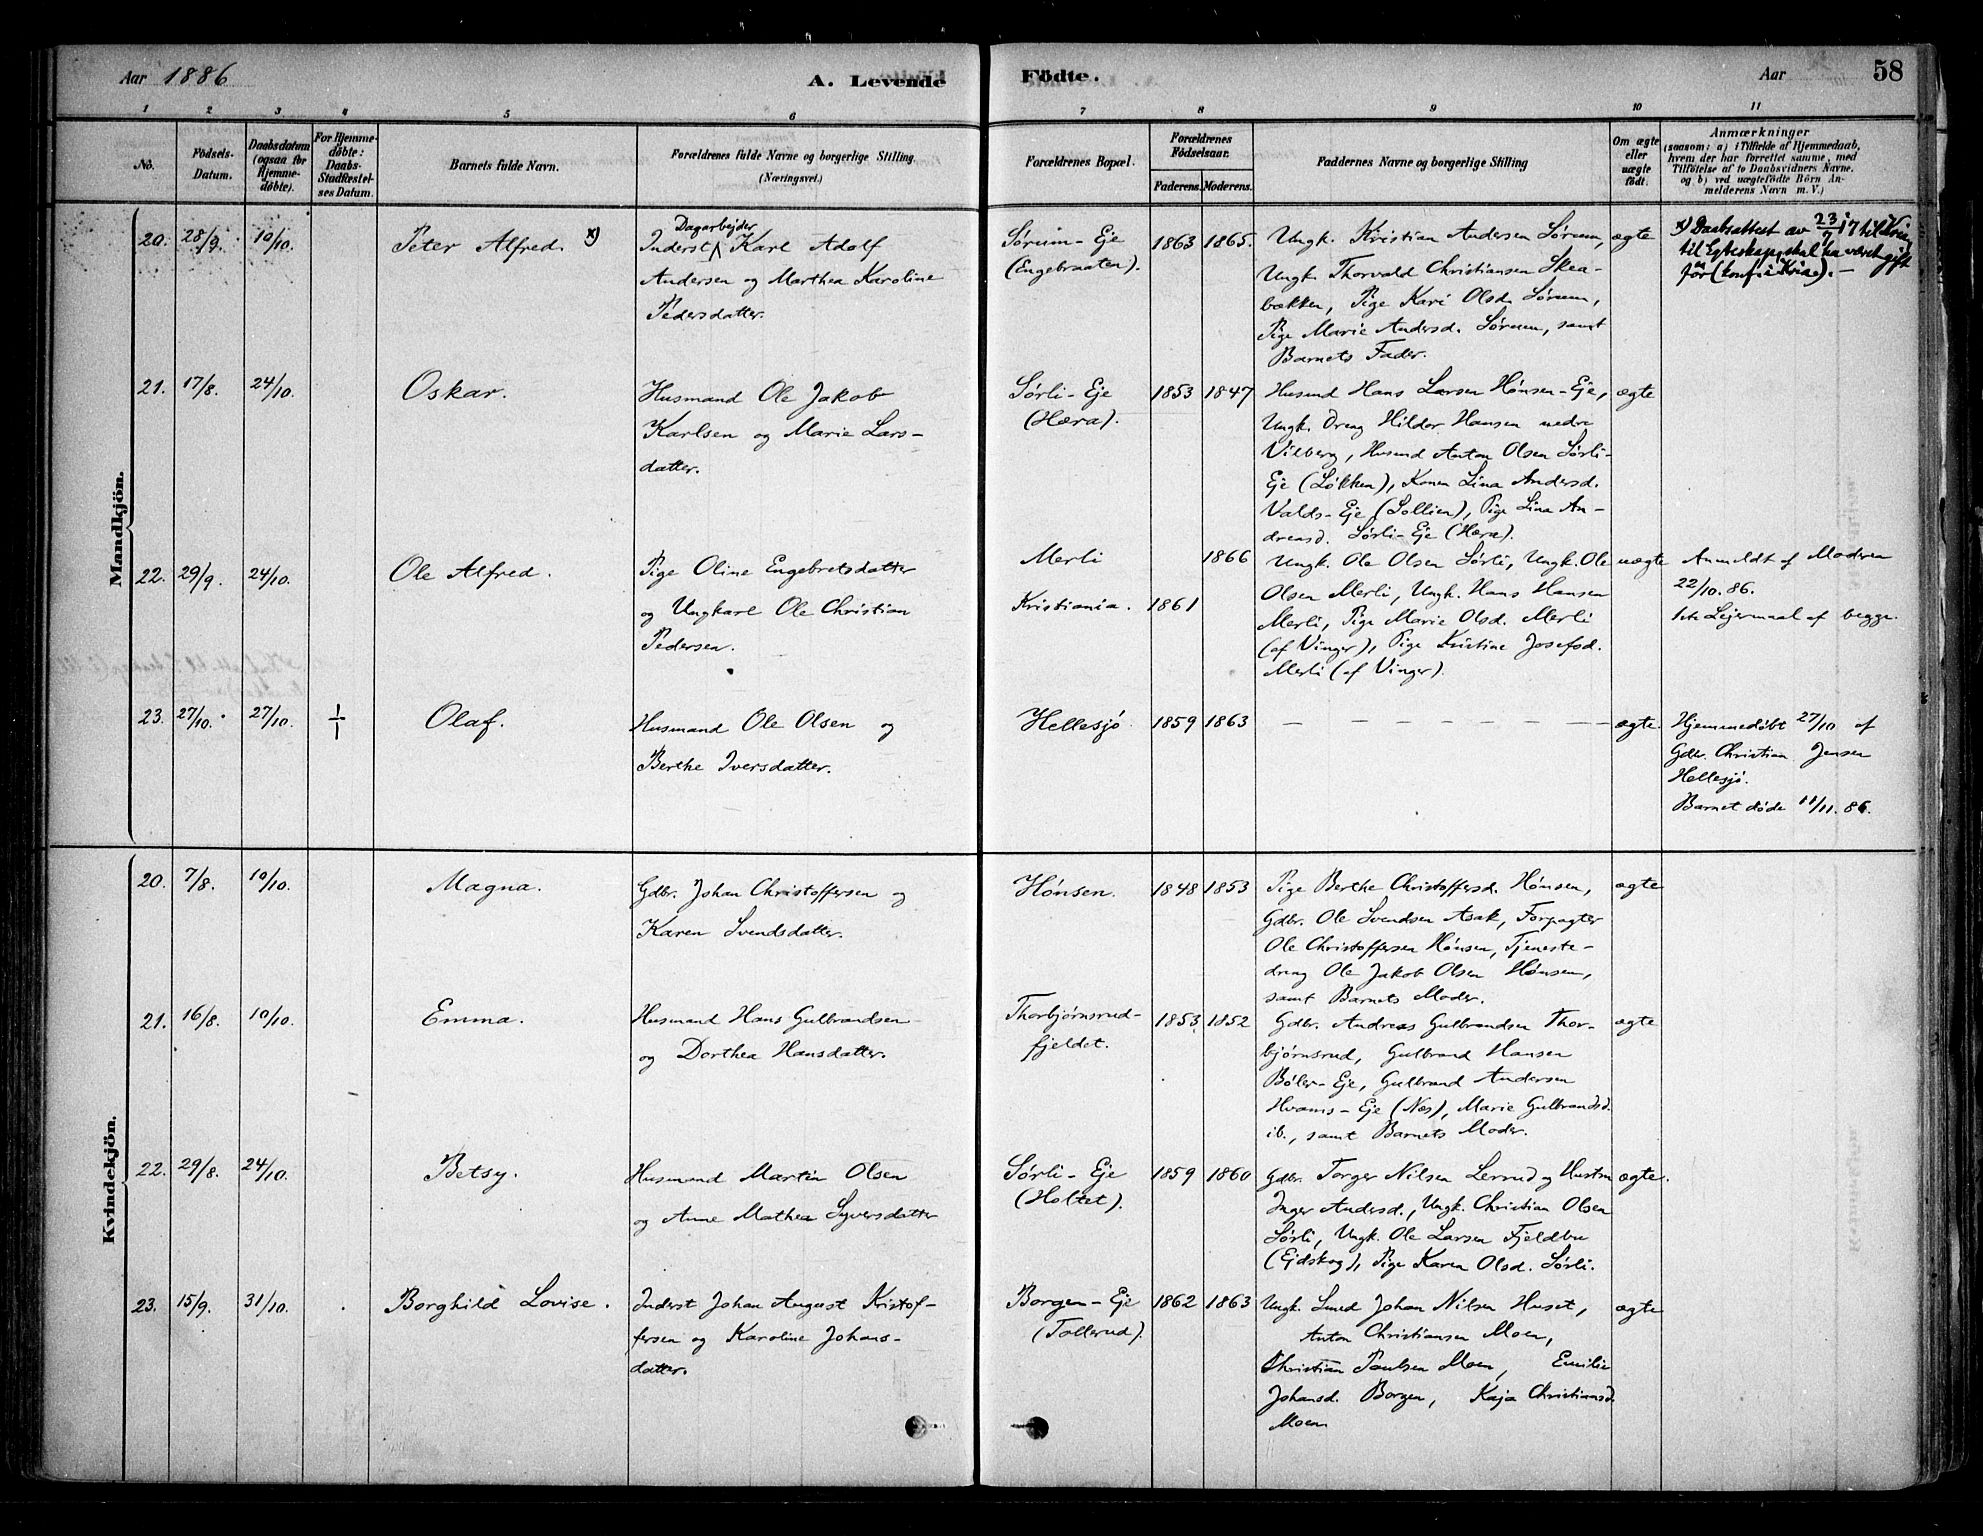 Aar 1886
A. Levende
Födte.
Aar
58
1 2 3 4 5 6 7 8 9 10 11
No.
Födsels-
Datum.
Daabsdatum
(ogsaa for
Hjemme-
döbte).
For Hjemme-
döbte:
Daabs-
Stadfæstel-
ses Datum.
Barnets fulde Navn.
Forældrenes fulde Navne og borgerlige Stilling.
(Næringsvei.)
Forældrenes Bopæl.
Forældrenes
Födselsaar.
Faderens. Moderens.
Faddernes Navne og borgerlige Stilling
Om ægte
eller
uægte
födt.
Anmærkninger
(saasom: a) i Tilfælde af Hjemmedaab,
hvem der har forrettet samme, med
Tilföielse af to Daabsvidners Navne,
og b) ved uægtefödte Börn An-
melderens Navn m. V.)
Mandkjön.
20. 28/9. 10/10.
Peter Alfred. x)
Dagarbejder
Inderst Karl Adolf
Andersen og Marthea Karoline
Pedersdatter.
Sørum-Eje
(Engebraaten).
1863 1865.
Ungk. Kristian Andersen Sørum,
Ungk. Thorvald Christiansen Skea-
bækken, Pige Kari Olsd. Sørum,
Pige Marie Andersd. Sørum, samt
Barnets Fader.
ægte
x) Daabsattest av 23/7 17 til
til Egteskap, skal ha været gift
før (konf. i Krise).-
21. 17/8. 24/10.
Oskar.
Husmand Ole Jakob
Karlsen og Marie Lars-
datter.
Sørli-Eje
(Hæra).
1853 1847
Husmd Hans Larsen Hønsen-Eje,
Ungk. Dreng Hildor Hansen nedre
Vilberg, Husmd Anton Olsen Sørli-
Eje (Løkken), Konen Lina Andersd.
Valds-Eje (Sollien), Pige Lina An-
dreasd. Sørli-Eje (Hæra).
ægte
22. 29/9. 24/10.
Ole Alfred.
Pige Oline Engebretsdatter
og Ungkarl Ole Christian
Pedersen.
Merli
Kristiania.
1866
1861
Ungk. Ole Olsen Sørli, Ungk. Ole
Olsen Merli, Ungk. Hans Hansen
Merli, Pige Marie Olsd. Merli
(af Vinger), Pige Kristine Josefsd.
Merli (af Vinger).
uægte
Anmeldt af Moderen
22/10. 86.
1ste Lejermaal af begge.
23. 27/10. 27/10.
Olaf.
Husmand Ole Olsen og
Berthe Iversdatter.
Hellesjø
1859 1863
— — — — — — — —
ægte.
Hjemmedøbt 27/10 af
Gdbr. Christian Jensen
Hellesjø.
Barnet døde 11/11. 86.
Kvindekjön.
20. 7/8. 10/10.
Magna.
Gdbr. Johan Christoffersen og
Karen Svendsdatter.
Hønsen.
1848 1853
Pige Berthe Christoffersd. Hønsen,
Gdbr. Ole Svendsen Asak, Forpagter
Ole Christoffersen Hønsen, Tjeneste-
dreng Ole Jakob Olsen Hønsen,
samt Barnets Moder.
ægte
21. 16/8. 10/10.
Emma.
Husmand Hans Gulbrandsen
og Dorthea Hansdatter.
Thorbjørnsrud-
fjeldet.
1853 1852
Gdbr. Andreas Gulbrandsen Thor-
bjørnsrud, Gulbrand Hansen
Bøler-Eje, Gulbrand Andersen
Hvams-Eje (Næs), Marie Gulbrandsd.
ib., samt Barnets Moder.
ægte
22. 29/8. 24/10.
Betsy.
Husmand Martin Olsen
og Anne Mathea Syversdatter
Sørli-Eje
(Holtet).
1859 1860
Gdbr. Torger Nilsen Lerrud og Hustru
Inger Andersd., Ungk. Christian Olsen
Sørli, Ungk. Ole Larsen Fjeldbu
(Ejdskog), Pige Karen Olsd. Sørli.
ægte.
23. 15/9. 31/10.
Borghild Lovise.
Inderst Johan August Kristof-
fersen og Karoline Johans-
datter.
Borgen-Eje
(Tollerud).
1862 1863
Ungk. Smed Johan Nilsen Huset,
Anton Christiansen Moen,
Christian Paulsen Moen, Emilie
Johansd. Borgen, Kaja Christiansd.
Moen
ægte